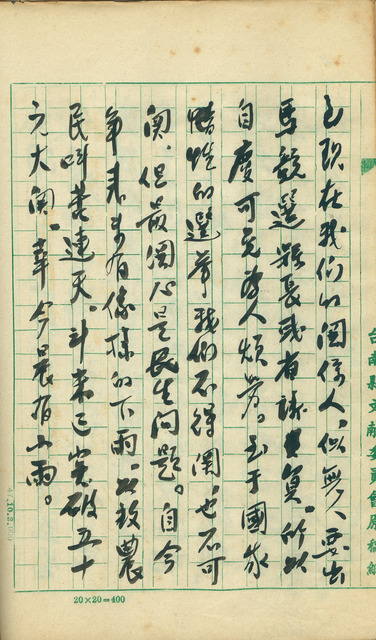 台南縣文献委員會原稿紙
至现在我们的関係人,似無人要出
馬競選縣長或省議員。所以
自度可免為人煩勞。至于國家
的選举我们不得関,也不可
関,但最関心是民生问題。自今
年来未有像樣的下雨,以致農
民叫苦連天。斗米已突破五十
元大関。幸今晨有小雨。
20×20=400